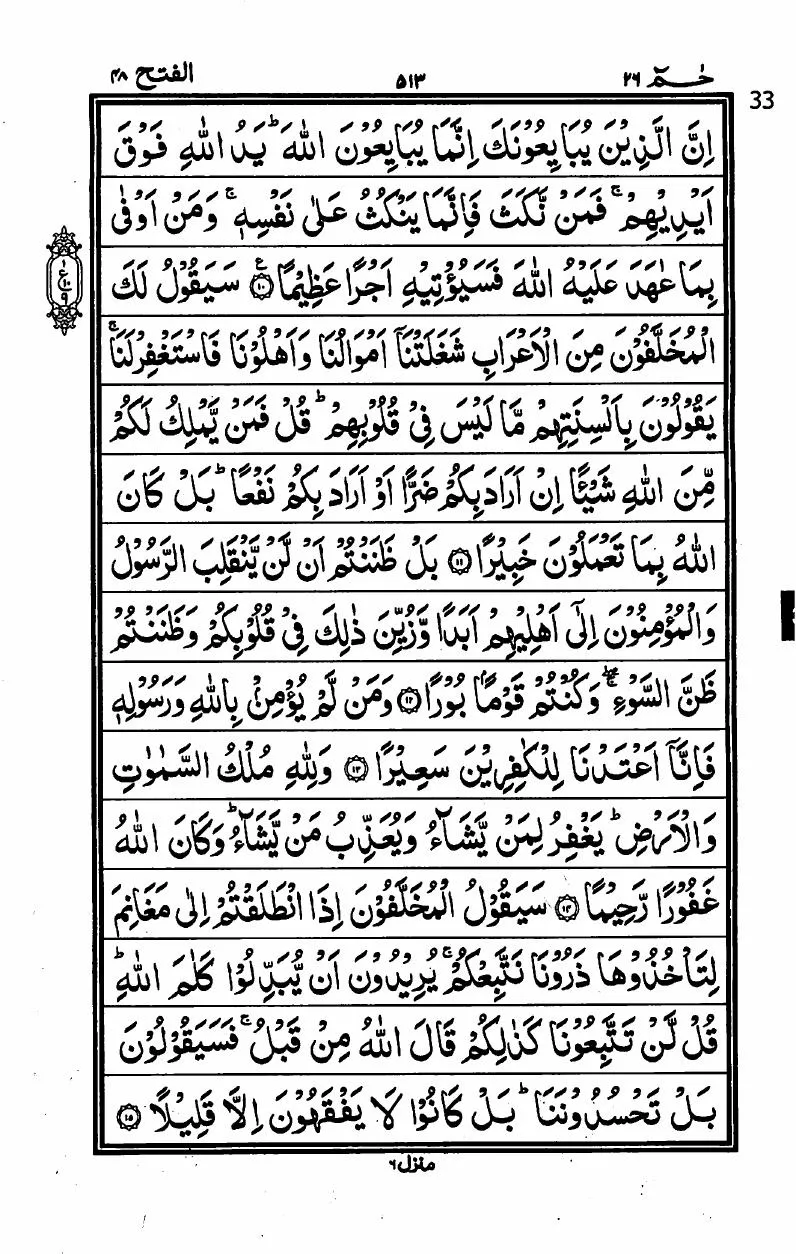 حٰـمٓ ٢٦ ٥١٣ الفتح ٤٨
33
اِنَّ الَّذِيْنَ يُبَايِعُوْنَكَ اِنَّمَا يُبَايِعُوْنَ اللّٰهَ ؕ يَدُ اللّٰهِ فَوْقَ
اَيْدِيْهِمْ ۚ فَمَنْ نَّكَثَ فَاِنَّمَا يَنْكُثُ عَلٰى نَفْسِهٖ ۚ وَمَنْ اَوْفٰى
بِمَا عٰهَدَ عَلَيْهُ اللّٰهَ فَسَيُؤْتِيْهِ اَجْرًا عَظِيْمًا ۧ ۝١٠ سَيَقُوْلُ لَكَ
ع ١ ١٠ ٩
الْمُخَلَّفُوْنَ مِنَ الْاَعْرَابِ شَغَلَتْنَاۤ اَمْوَالُنَا وَاَهْلُوْنَا فَاسْتَغْفِرْ لَنَا ۚ
يَقُوْلُوْنَ بِاَلْسِنَتِهِمْ مَّا لَيْسَ فِيْ قُلُوْبِهِمْ ؕ قُلْ فَمَنْ يَّمْلِكُ لَكُمْ
مِّنَ اللّٰهِ شَيْئًا اِنْ اَرَادَ بِكُمْ ضَرًّا اَوْ اَرَادَ بِكُمْ نَفْعًا ؕ بَلْ كَانَ
اللّٰهُ بِمَا تَعْمَلُوْنَ خَبِيْرًا ۝١١ بَلْ ظَنَنْتُمْ اَنْ لَّنْ يَّنْقَلِبَ الرَّسُوْلُ
وَالْمُؤْمِنُوْنَ اِلٰۤى اَهْلِيْهِمْ اَبَدًا وَّزُيِّنَ ذٰلِكَ فِيْ قُلُوْبِكُمْ وَظَنَنْتُمْ
ظَنَّ السَّوْءِ ۖۚ وَكُنْتُمْ قَوْمًۢا بُوْرًا ۝١٢ وَمَنْ لَّمْ يُؤْمِنْۢ بِاللّٰهِ وَرَسُوْلِهٖ
فَاِنَّاۤ اَعْتَدْنَا لِلْكٰفِرِيْنَ سَعِيْرًا ۝١٣ وَلِلّٰهِ مُلْكُ السَّمٰوٰتِ
وَالْاَرْضِ ؕ يَغْفِرُ لِمَنْ يَّشَآءُ وَيُعَذِّبُ مَنْ يَّشَآءُ ؕ وَكَانَ اللّٰهُ
غَفُوْرًا رَّحِيْمًا ۝١٤ سَيَقُوْلُ الْمُخَلَّفُوْنَ اِذَا انْطَلَقْتُمْ اِلٰى مَغَانِمَ
لِتَاْخُذُوْهَا ذَرُوْنَا نَتَّبِعْكُمْ ۚ يُرِيْدُوْنَ اَنْ يُّبَدِّلُوْا كَلٰمَ اللّٰهِ ؕ
قُلْ لَّنْ تَتَّبِعُوْنَا كَذٰلِكُمْ قَالَ اللّٰهُ مِنْ قَبْلُ ۚ فَسَيَقُوْلُوْنَ
بَلْ تَحْسُدُوْنَنَا ؕ بَلْ كَانُوْا لَا يَفْقَهُوْنَ اِلَّا قَلِيْلًا ۝١٥
منزل ٦